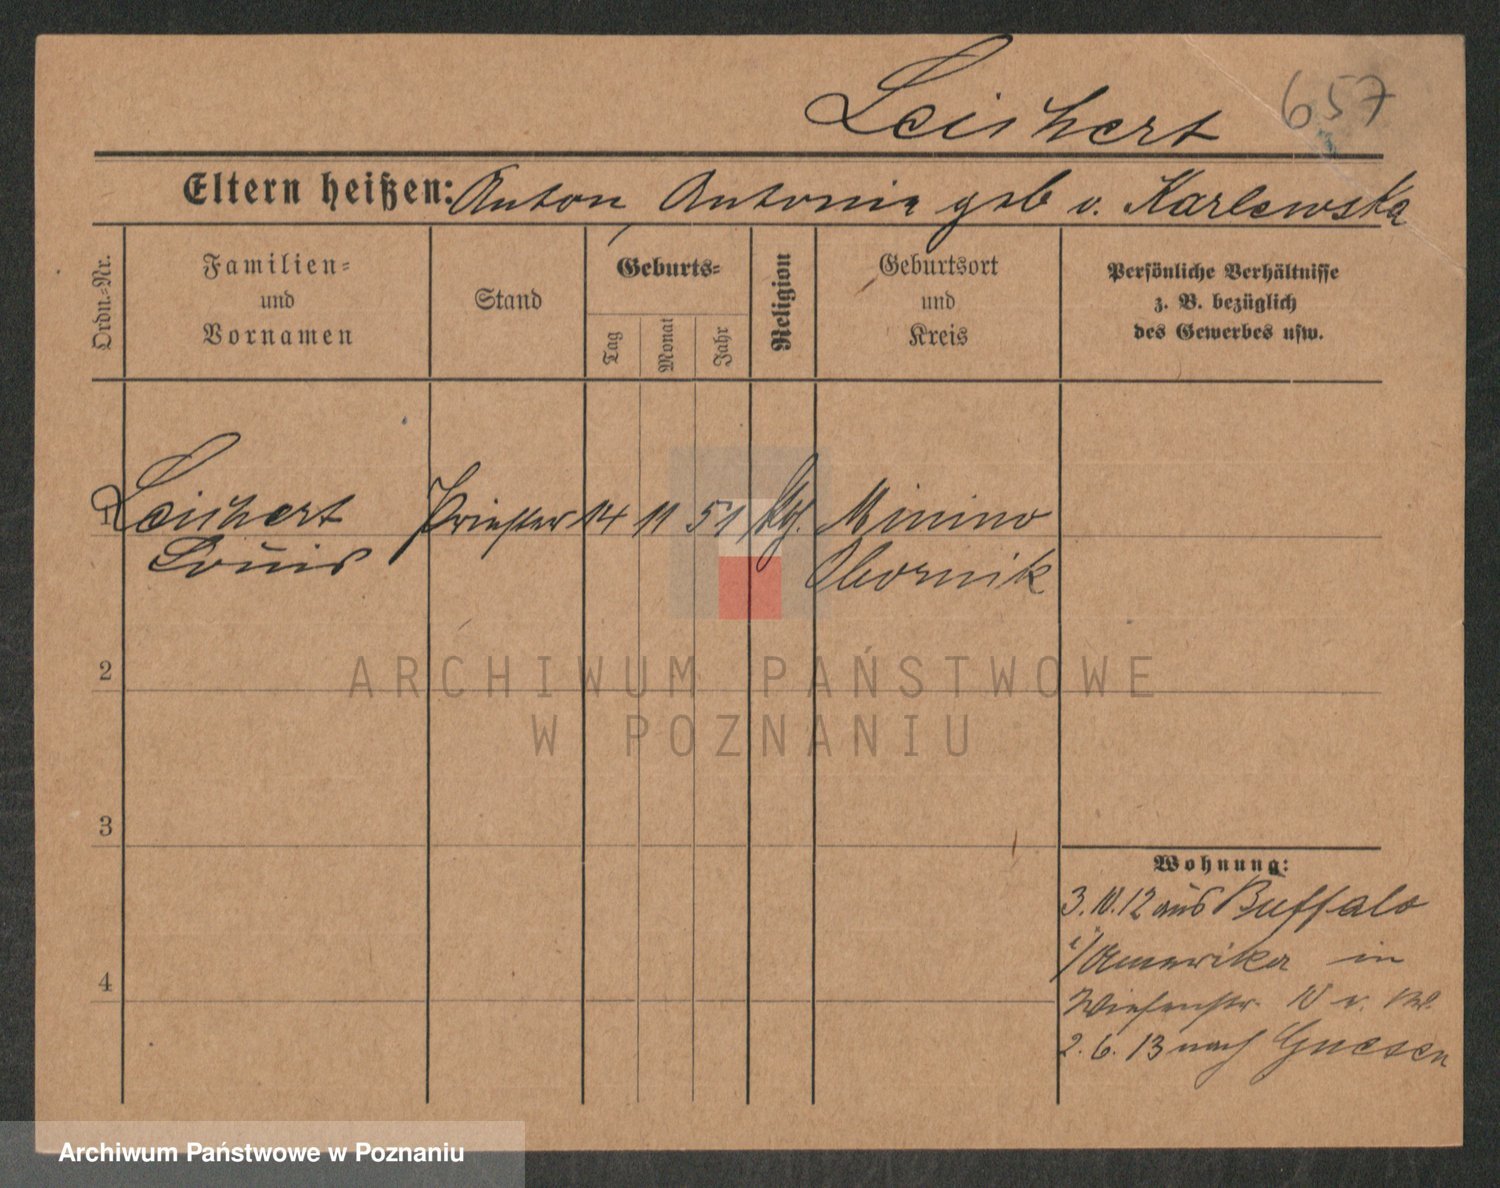 Leichert 657
Eltern heißen: Anton Antonia geb v. Karlewska
Ordn.-Nr.
Familien-
und
Vornamen
Stand
Geburts-
Tag
Monat
Jahr
Religion
Geburtsort
und
Kreis
Persönliche Verhältnisse
z. B. bezüglich
des Gewerbes usw.
1 Leichert Priester 14 11 51 Kg. Minino
Louis Obornik
2
ARCHIWUM PAŃSTWOWE
W POZNANIU
3
Wohnung:
3. 10. 12 aus Buffalo
i/Amerika in
4
Wiesenstr. 10
2. 6. 13 nach Gnesen
Archiwum Państwowe w Poznaniu